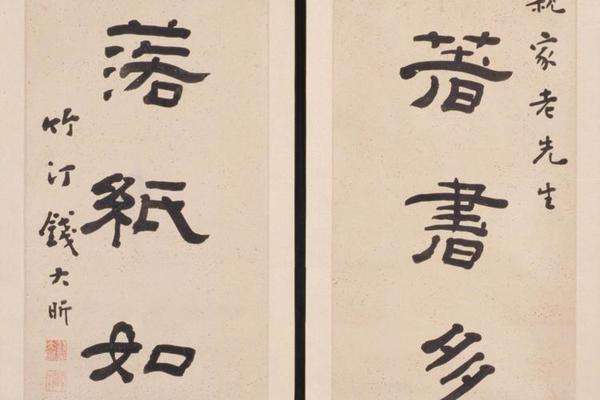 親家老先生
著書多
落紙如
竹汀錢大昕